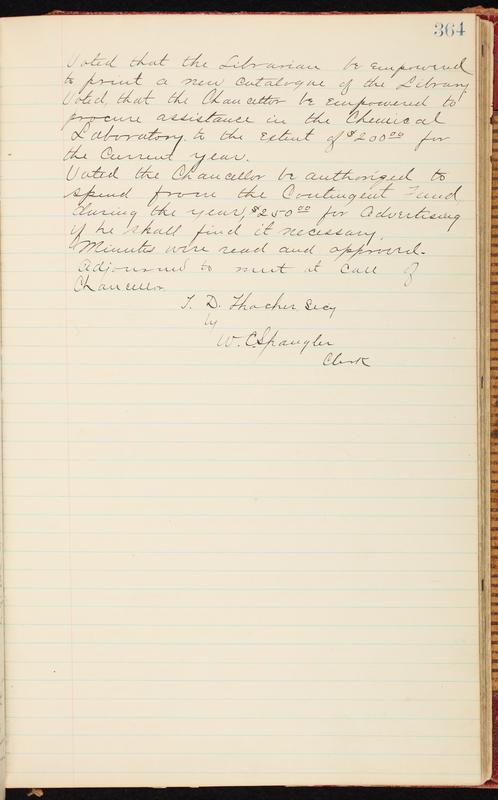 364
Voted that the Librarian be empowered
to print a new catalogue of the Library
Voted, that the Chancellor be Empowered to
procure assistance in the Chemical
Laboratory to the Extent of $200 00 for
the Current year.
Voted the Chancellor be authorized to
spend from the Contingent Fund
during the year, $250 00 for Advertising
if he shall find it necessary.
Minutes were read and approved.
Adjourned to meet at Call of
Chancellor
T. D. Thacher Secy
by
W. C. Spangler
Clerk